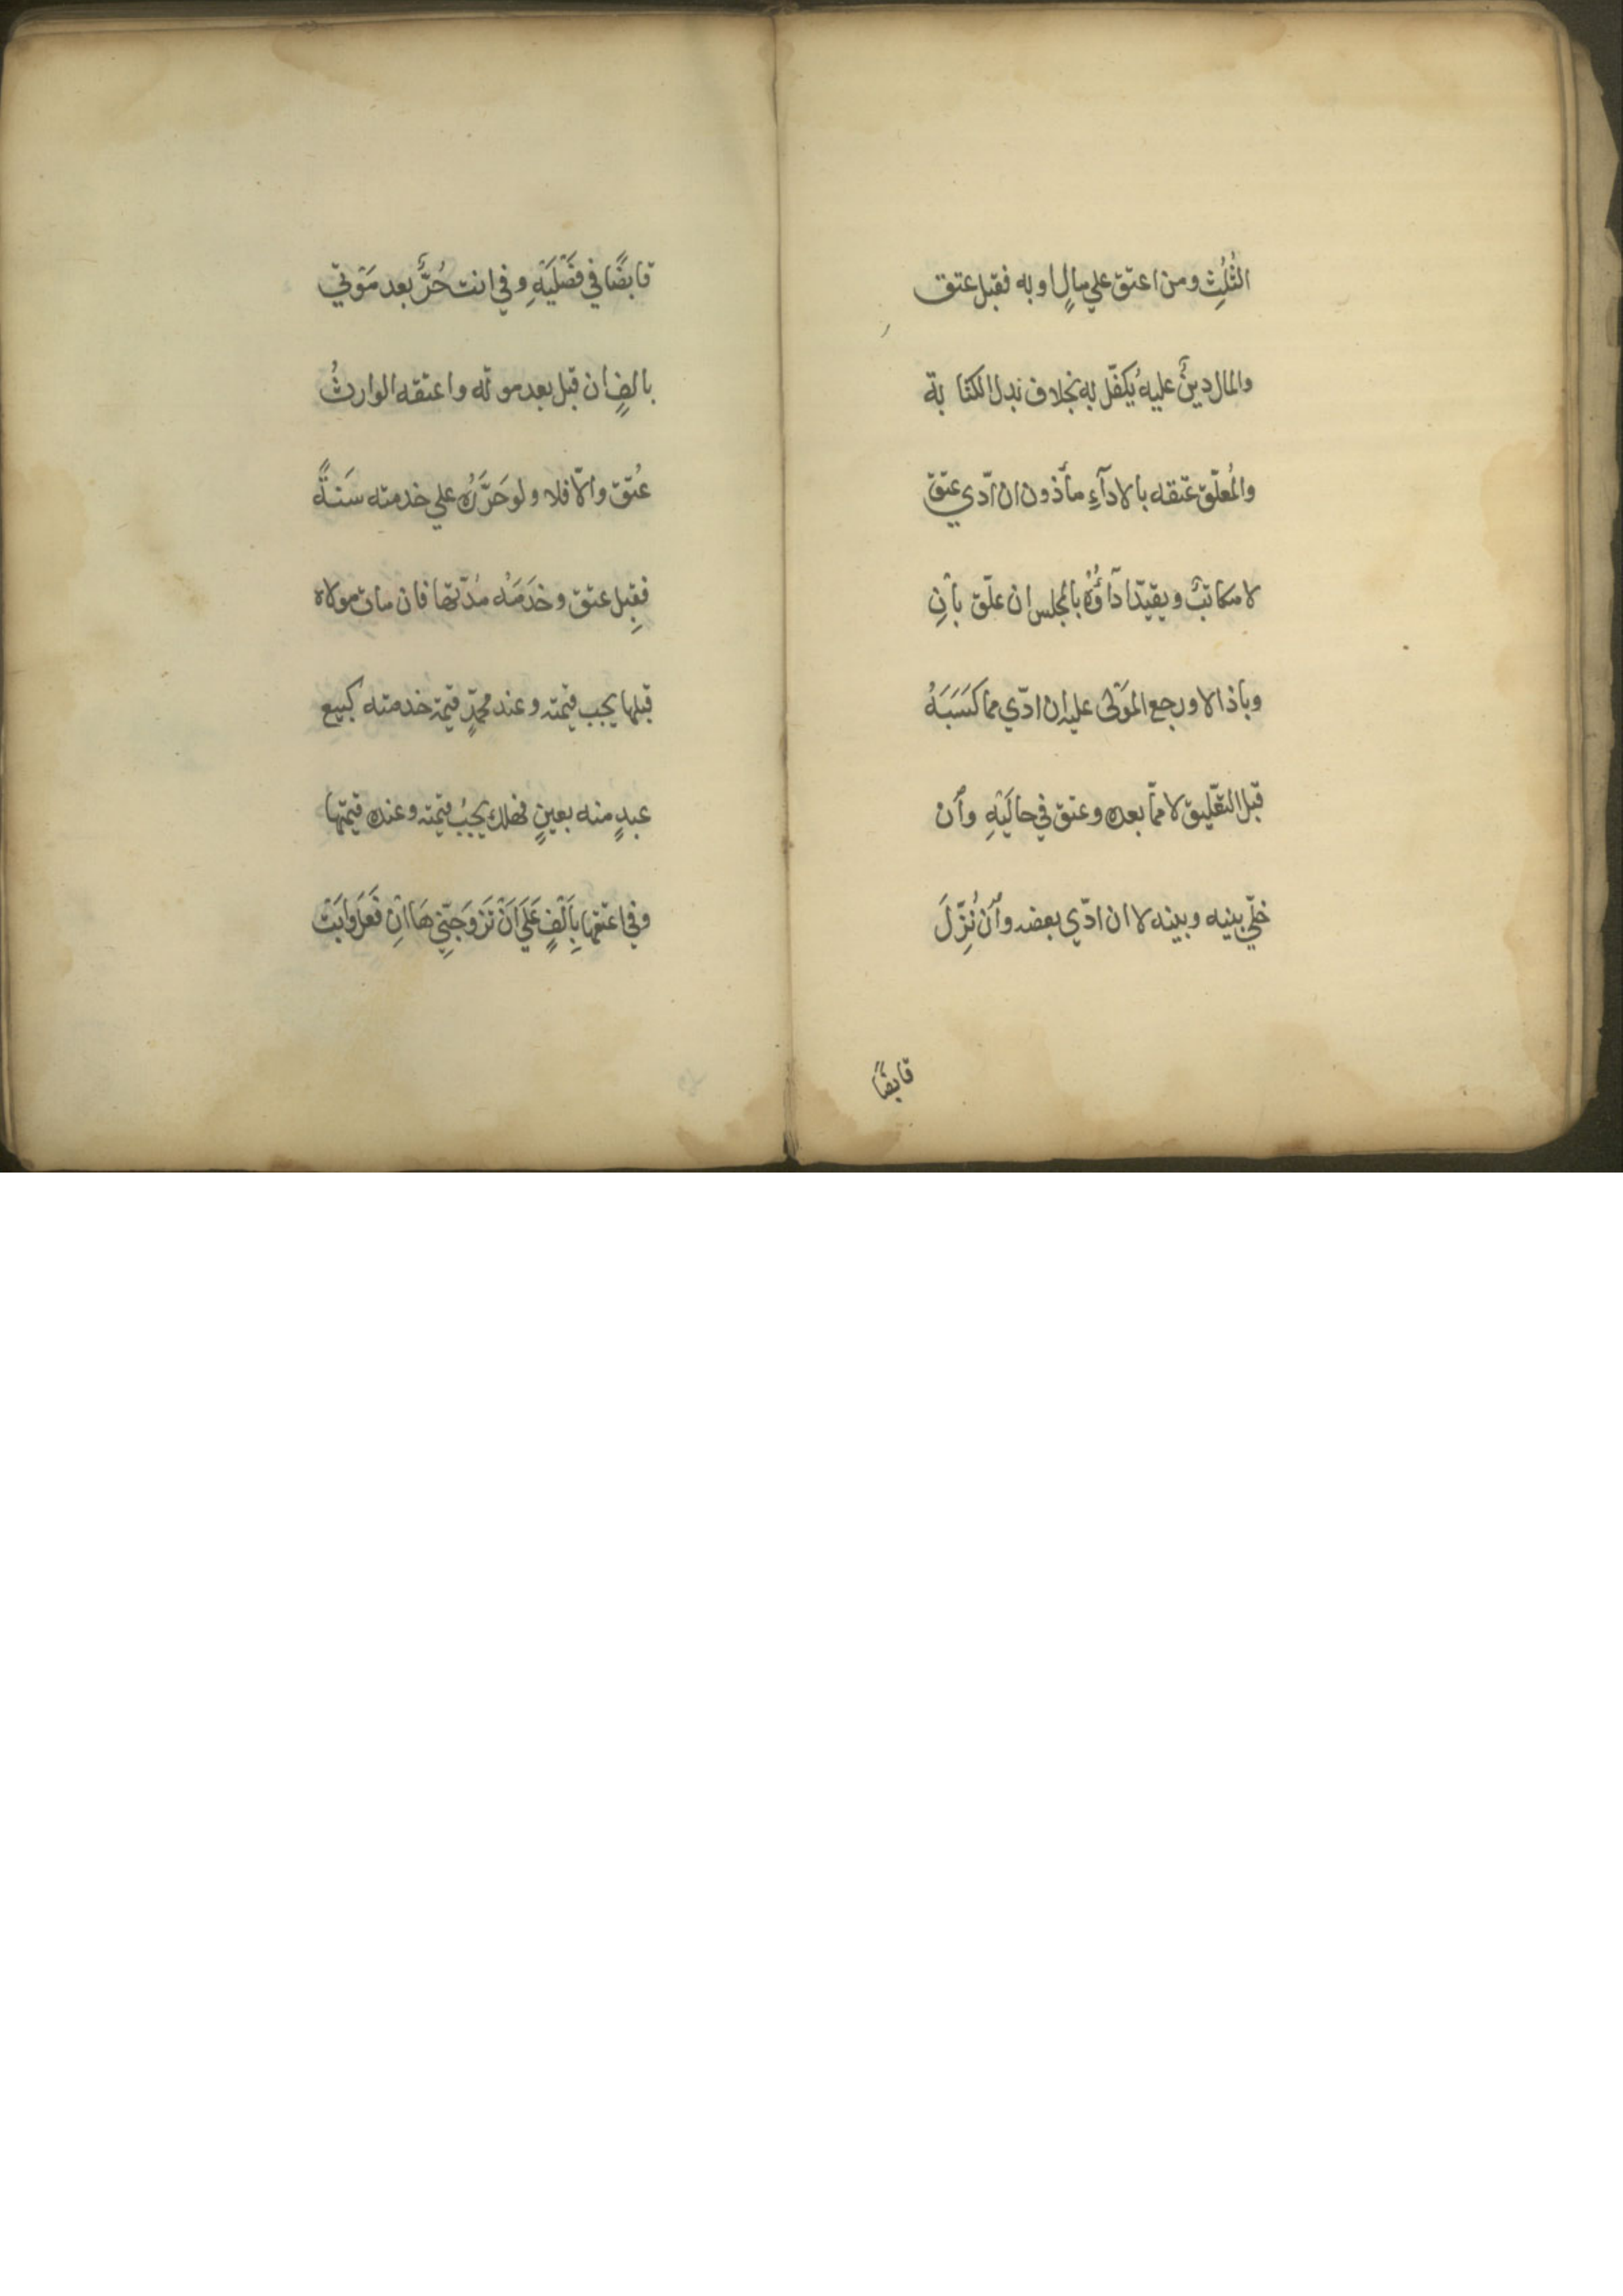 الثُلُثِ ومن اعتق علي مالٍ او به فقبل عتق
والمال دينٌ عليه يُكفّل به بخلاف بدل الكتابة
والمُعلّق عتقه بالادآءِ مأذون ان ادّي عتق
لا مكاتبٌ ويقيّد ادآؤُهُ بالمجلس ان علّق بأنِ
وبأذا لا ورجع المَوْلَى عليه ان ادّي مما كَسَبَهُ
قبل التعّليق لا ممّا بعده وعتق في حالَيْهِ وأن
خلّي بينه وبينه لا ان ادّي بعضه وأن نُزِّلَ
قابضًا
قابضًا في فَصْلَيْهِ وفي انت حُرٌّ بعد مَوْتي
بالفٍ ان قبل بعد موته واعتقه الوارثُ
عُتق والّا فلا ولو حَرَّرُه علي خدمته سَنةً
فقبِل عتق وخَدَمَهُ مُدّتها فان مات مولاه
قبلها يجب قيمته وعند محمّدٍ قيمة خدمته كبيع
عبدٍ منه بعينٍ فهلك يجبُ قيمته وعنده قيمتها
وفي اعتقها بِاَلْفٍ عَلَيَ اَنْ تَزوِجَنِّيْهَا اِنِ فَعَلَ وابَتْ